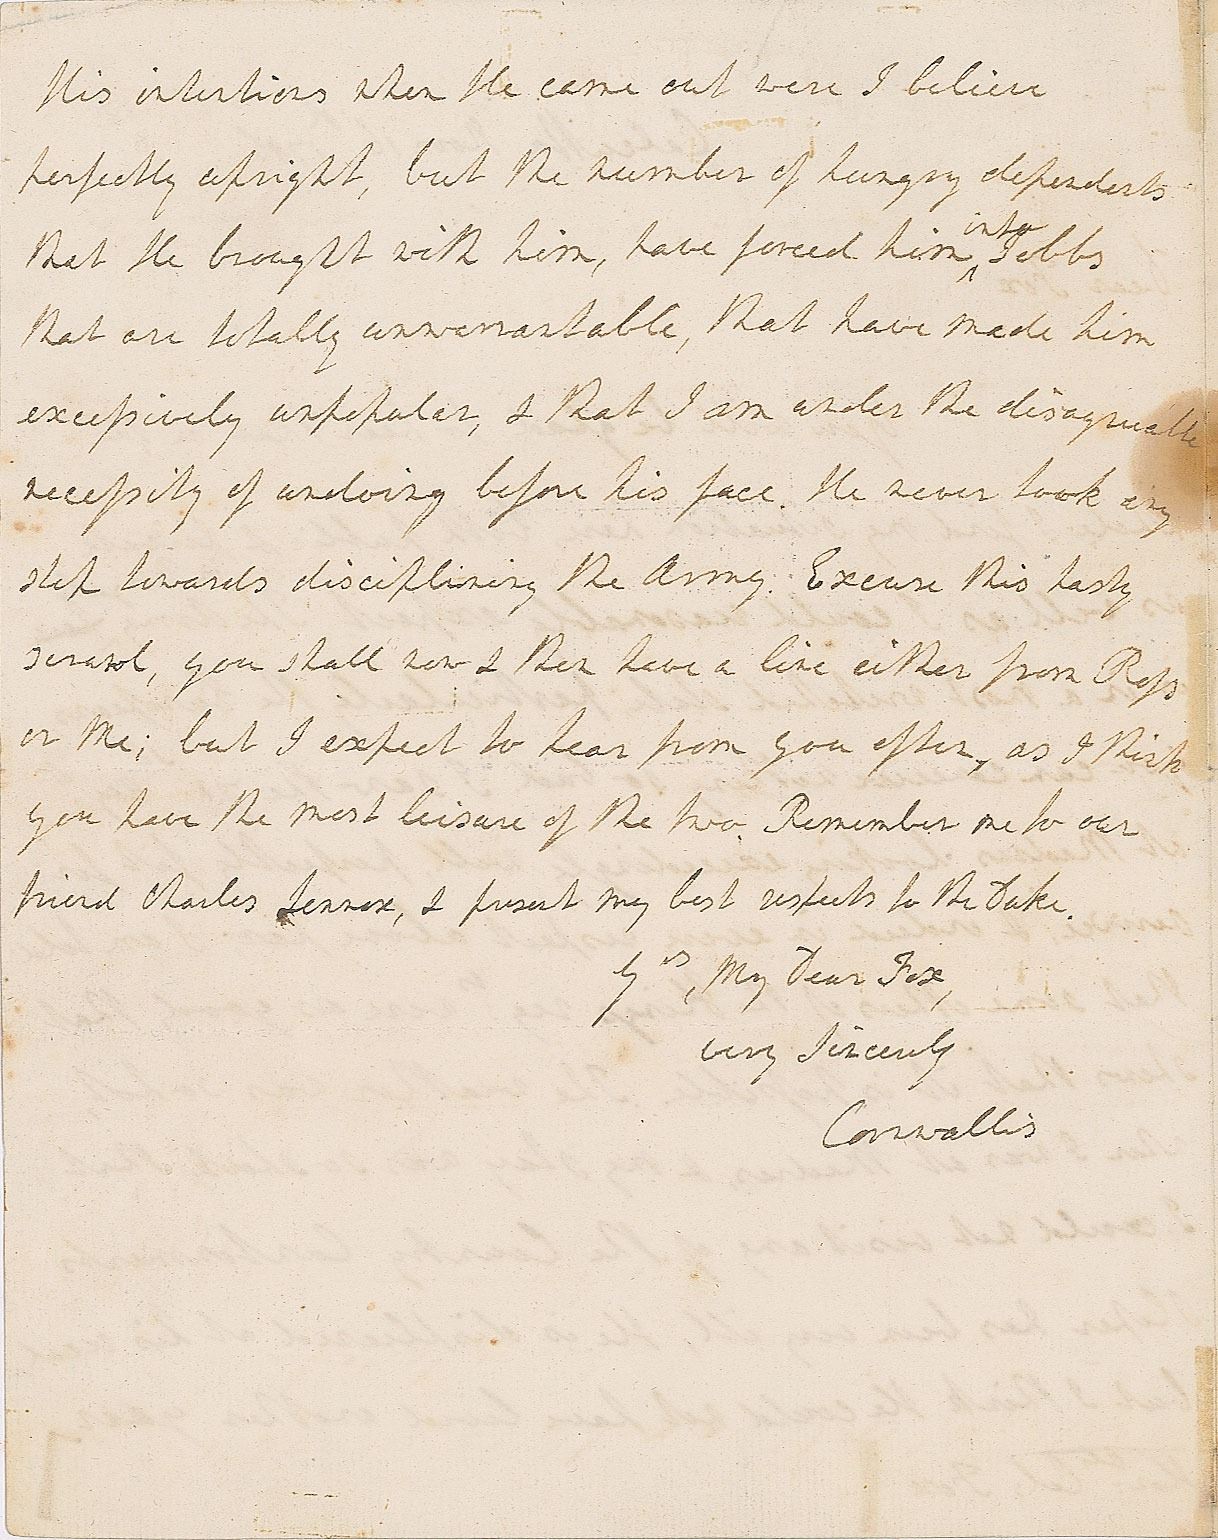 His intentions when He came out were I believe
perfectly upright, but the number of hungry dependents
that He brought with him, have forced him ^into Jobbs
that are totally unwarrantable, that have made him
excessively unpopular, & that I am under the disagreeable
necessity of undoing before his face. He never took any
step towards disciplining the Army. Excuse this hasty
scrawl, you shall now & then have a line either from Ross
or Me; but I expect to hear from you often, as I think
you have the most leisure of the two. Remember me to our
friend Charles Lennox, & present my best respects to the Duke.
Yrs, My Dear Fox,
very Sincerely
Cornwallis